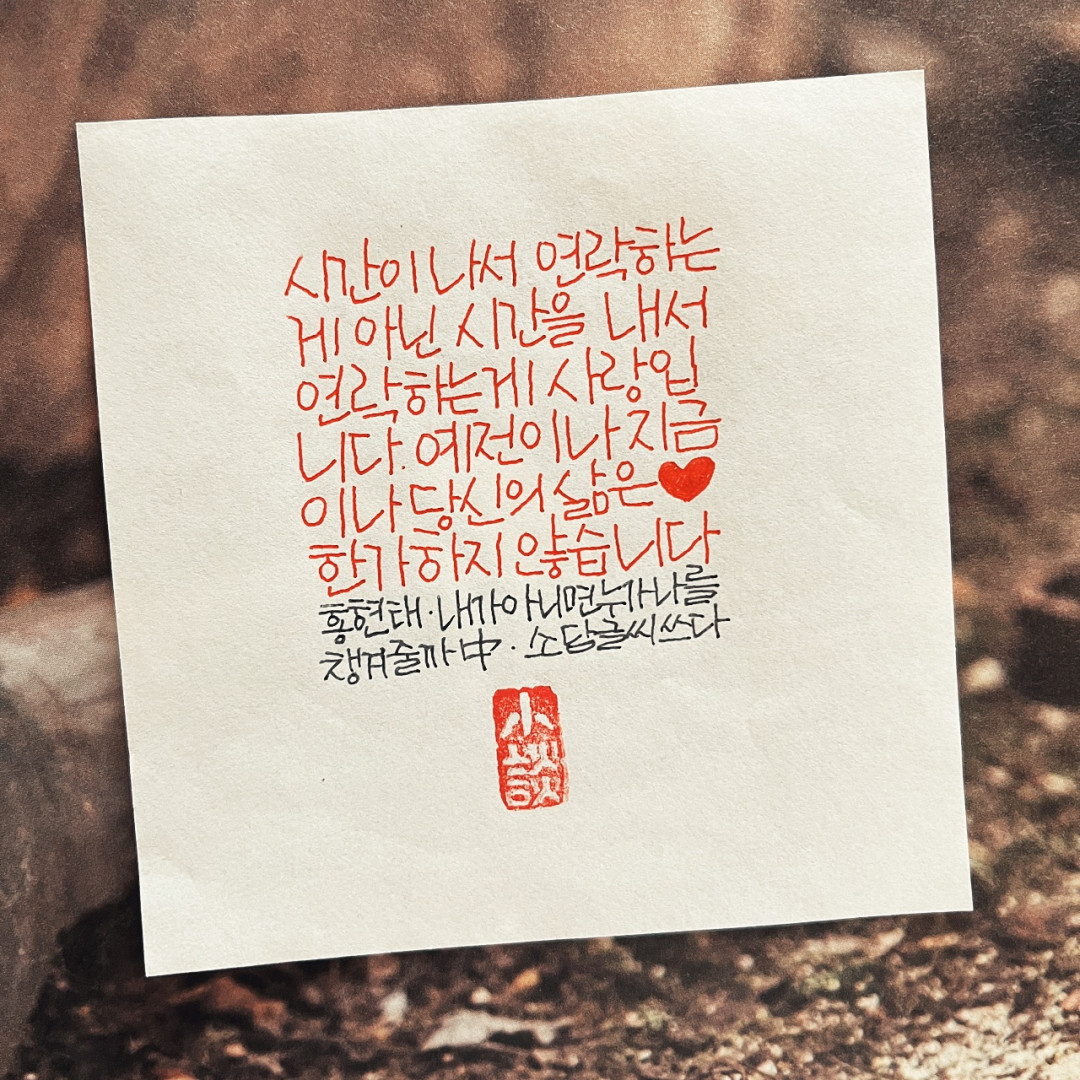 시간이 나서 연락하는
게 아닌 시간을 내서
연락하는게 사랑입
니다. 예전이나 지금
이나 당신의 삶은♥
한가하지 않습니다
홍현태·내가아니면누가나를
챙겨줄까 中·소담글씨쓰다
小談